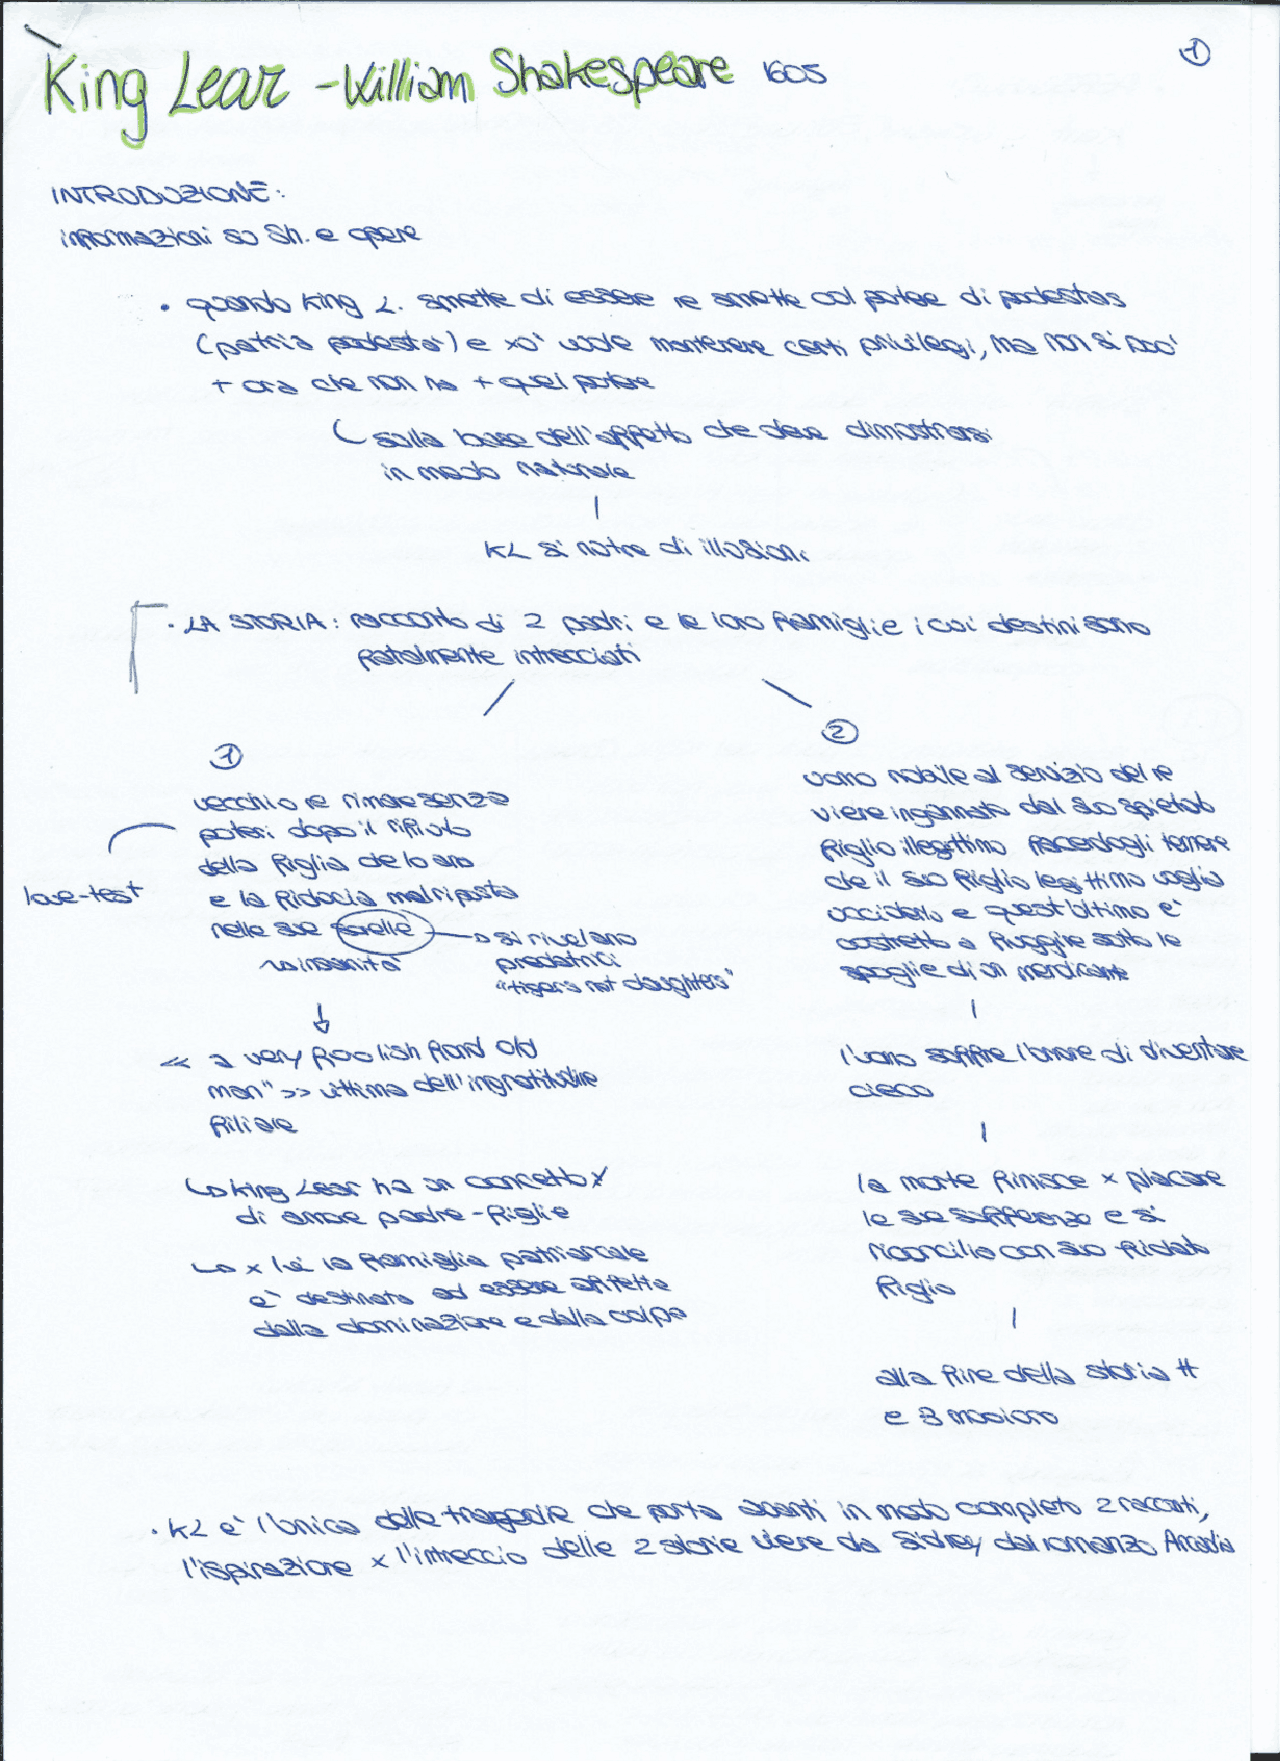 1
King Lear - William Shakespeare 1605
INTRODUZIONE:
informazioni su Sh. e opere
• quando King L. smette di essere re smette col potere di podestas
(patria podestà) e xò vuole mantenere certi privilegi, ma non si può
+ ora che non ha + quel potere
sulla base dell'affetto che deve dimostrarsi
in modo naturale
KL si nutre di illusioni
• LA STORIA: racconto di 2 padri e le loro famiglie i cui destini sono
fatalmente intrecciati
1
vecchio re rimane senza
poteri dopo il rifiuto
della figlia che lo ama
love-test
e la fiducia malriposta
nelle sue sorelle → si rivelano
predatrici
"tigers not daughters"
↳ insanità
↓
<< a very foolish fond old
man" >> vittima dell'ingratitudine
filiale
↳ King Lear ha un concetto
di amore padre-figlie
↳ x lei la famiglia patriarcale
è destinata ad essere affetta
dalla dominazione e dalla colpa
2
uomo nobile al servizio del re
viene ingannato dal suo spietato
figlio illegittimo facendogli temere
che il suo figlio legittimo voglia
ucciderlo e quest'ultimo è
costretto a fuggire sotto le
spoglie di un mendicante
l'uomo soffre l'orrore di diventare
cieco
la morte finisce x placare
le sue sofferenze e si
riconcilia con suo fidato
figlio
alla fine della storia #
e 3 muoiono
• KL è l'unica delle tragedie che porta avanti in modo completo 2 racconti,
l'ispirazione x l'intreccio delle 2 storie viene da Sidney dal romanzo Arcadia